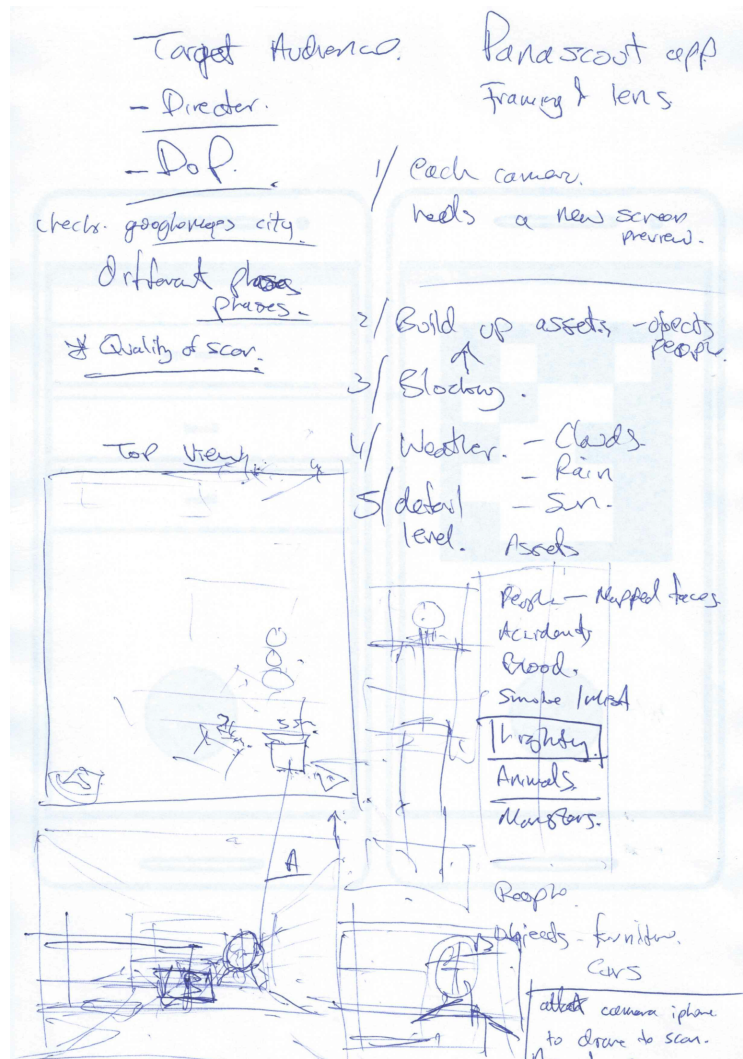 Target Audience.
- Director.
- DoP.
check. googlemaps city.
Different phases
phases.
* Quality of scan.
Panascout app
Framing & lens
1/ each camera.
needs a new screen
preview.
2/ Build up assets - objects
people.
3/ Blocking.
4/ Weather. - Clouds.
- Rain
- Sun.
5/ detail
level.
Assets
People - Mapped faces
Accidents
Blood.
Smoke / Mist
Lighting.
Animals.
Monsters.
People
Objects - furniture.
Cars
attach camera iphone
to drone to scan.
Top View
A